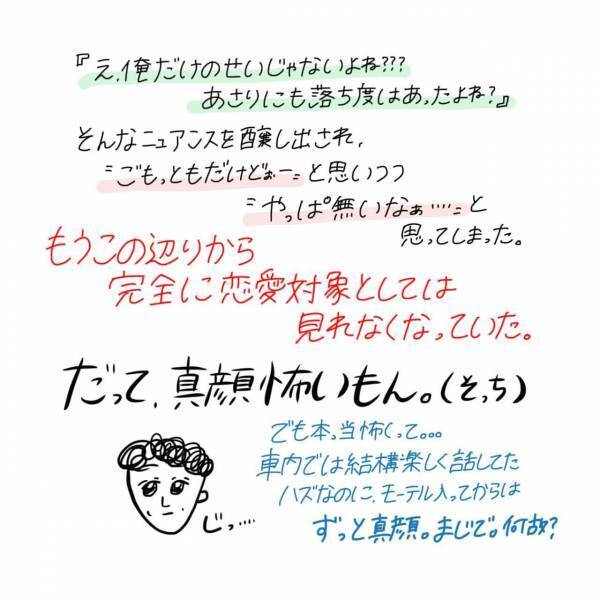 『え、俺だけのせいじゃないよね???
あさりにも落ち度はあったよね?』
そんなニュアンスを醸し出され、
"ごもっともだけどぉー" と思いつつ
"やっぱ無いなぁ····" と
思ってしまった。
もうこの辺りから
完全に恋愛対象としては
見れなくなっていた。
だって、真顔怖いもん。(そっち)
でも本っ当怖くって。。。
車内では結構楽しく話してた
ハズなのに、モーテル入ってからは
ずっと真顔。まじで。何故?
じっ····